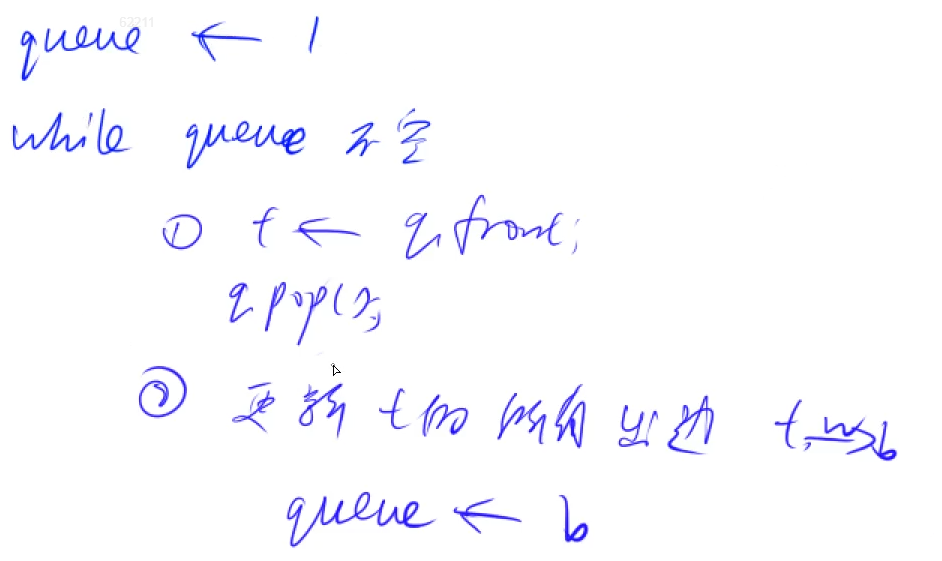 63211
queue ← 1
while queue 不空
① t ← q.front;
q.pop();
② 更新 t的所有出边 t →w b
queue ← b